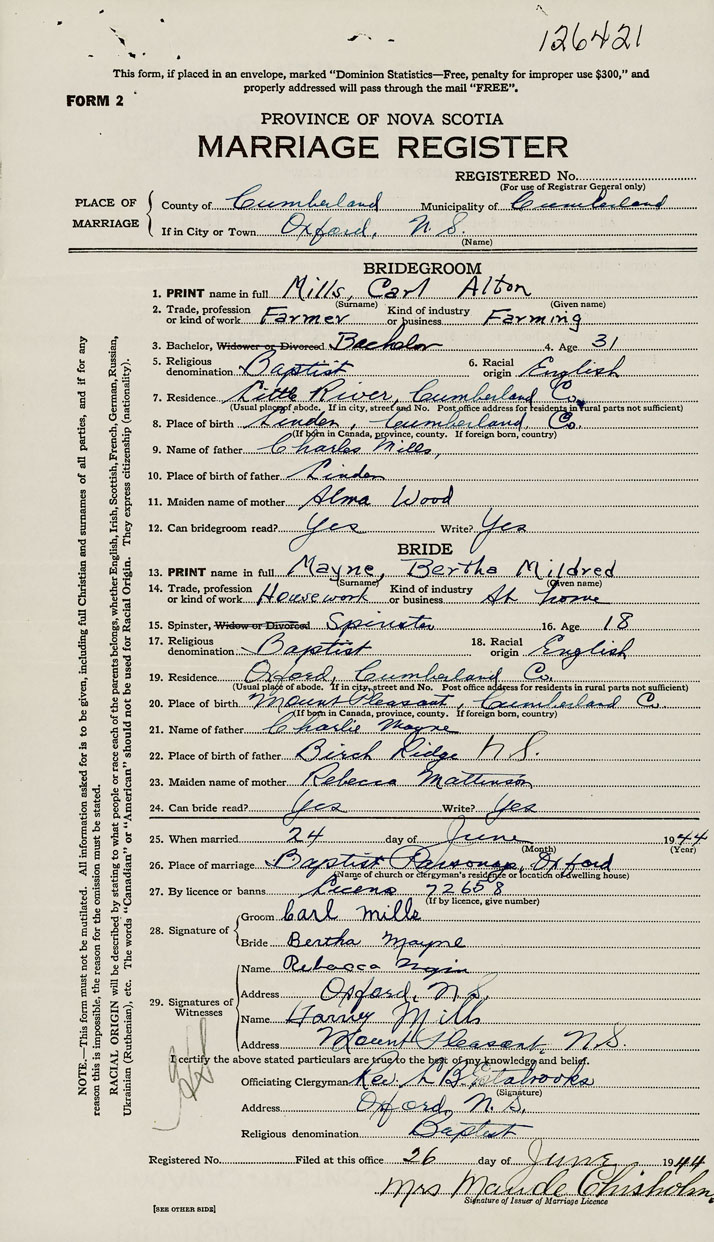 126421
This form, if placed in an envelope, marked "Dominion Statistics—Free, penalty for improper use $300," and
properly addressed will pass through the mail "FREE".
FORM 2
PROVINCE OF NOVA SCOTIA
MARRIAGE REGISTER
REGISTERED No.
(For use of Registrar General only)
PLACE OF MARRIAGE
County of Cumberland Municipality of Cumberland
If in City or Town Oxford, N.S.
(Name)
BRIDEGROOM
1. PRINT name in full Mills, Carl Alton
(Surname) (Given name)
2. Trade, profession or kind of work Farmer Kind of industry or business Farming
3. Bachelor, Widower or Divorced Bachelor 4. Age 31
5. Religious denomination Baptist 6. Racial origin English
7. Residence Little River, Cumberland Co.
(Usual place of abode. If in city, street and No. Post office address for residents in rural parts not sufficient)
8. Place of birth Linden, Cumberland Co.
(If born in Canada, province, county. If foreign born, country)
9. Name of father Charles Mills,
10. Place of birth of father Linden
11. Maiden name of mother Alma Wood
12. Can bridegroom read? Yes Write? Yes
BRIDE
13. PRINT name in full Mayne, Bertha Mildred
(Surname) (Given name)
14. Trade, profession or kind of work Housework Kind of industry or business At home
15. Spinster, Widow or Divorced Spinster 16. Age 18
17. Religious denomination Baptist 18. Racial origin English
19. Residence Oxford, Cumberland Co.
(Usual place of abode. If in city, street and No. Post office address for residents in rural parts not sufficient)
20. Place of birth Mount Pleasant, Cumberland Co.
(If born in Canada, province, county. If foreign born, country)
21. Name of father Charlie Mayne
22. Place of birth of father Birch Ridge N.S.
23. Maiden name of mother Rebecca Mattinson
24. Can bride read? Yes Write? Yes
25. When married 24 day of June 1944
(Month) (Year)
26. Place of marriage Baptist Parsonage, Oxford
(Name of church or clergyman's residence or location of dwelling house)
27. By licence or banns Licens 72658
(If by licence, give number)
28. Signature of
Groom Carl Mills
Bride Bertha Mayne
29. Signatures of Witnesses
Name Rebecca
Address Oxford, N.S.
Name Harvey Mills
Address Mount Pleasant, N.S.
I certify the above stated particulars are true to the best of my knowledge and belief.
Officiating Clergyman Rev. L B. Estabrooks
(Signature)
Address Oxford, N.S.
Religious denomination Baptist
Registered No. Filed at this office 26 day of June 1944
Mrs Maude Chisholm
Signature of Issuer of Marriage Licence
[SEE OTHER SIDE]
NOTE.—This form must not be mutilated. All information asked for is to be given, including full Christian and surnames of all parties, and if for any
reason this is impossible, the reason for the omission must be stated.
RACIAL ORIGIN will be described by stating to what people or race each of the parents belongs, whether English, Irish, Scottish, French, German, Russian,
Ukrainian (Ruthenian), etc. The words "Canadian" or "American" should not be used for Racial Origin. They express citizenship (nationality).